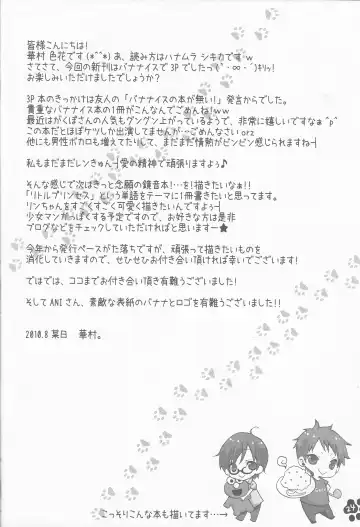 皆様こんにちは!
華村 色花です(*^^*)あ、読み方はハナムラ シキカです w
さてさて、今回の新刊はバナナイスで3Pでしたっ(`・∞・´)キリッ!
お楽しみいただけましたでしょうか?
3P本のきっかけは友人の「バナナイスの本が無い!」発言からでした。
貴重なバナナイス本の1冊がこんなでごめんね!w
最近はがくぽさんの人気もグングン上がっているようで、非常に嬉しいですなぁ^p^
この本だとほぼケツしか出演してませんが…ごめんなさい orz
他にも男性ボカロも増えてたりして、まだまだ情熱がビンビン感じられますね┤
私もまだまだレンきゅん┤愛の精神で頑張りますよ♪
そんな感じで次はきっと念願の鏡音本!…を!描きたいなぁ!!
「リトルプリンセス」という単語をテーマに1冊書きたいと思ってます。
リンちゃんをすごくすごく可愛く描きたいんですよう┤
少女マンガっぽくする予定ですので、お好きな方は是非
ブログなどをチェックしていただければと思います─★
今年から発行ペースががた落ちですが、頑張って描きたいものを
消化していきますので、ぜひぜひお付き合い頂ければ幸いでございます!
ではでは、ココまでお付き合い頂き有難うございました!
そしてANIさん、素敵な表紙のバナナとロゴを有難うございました!!
2010.8 某日 華村。
こっそりこんな本も描いてます…→